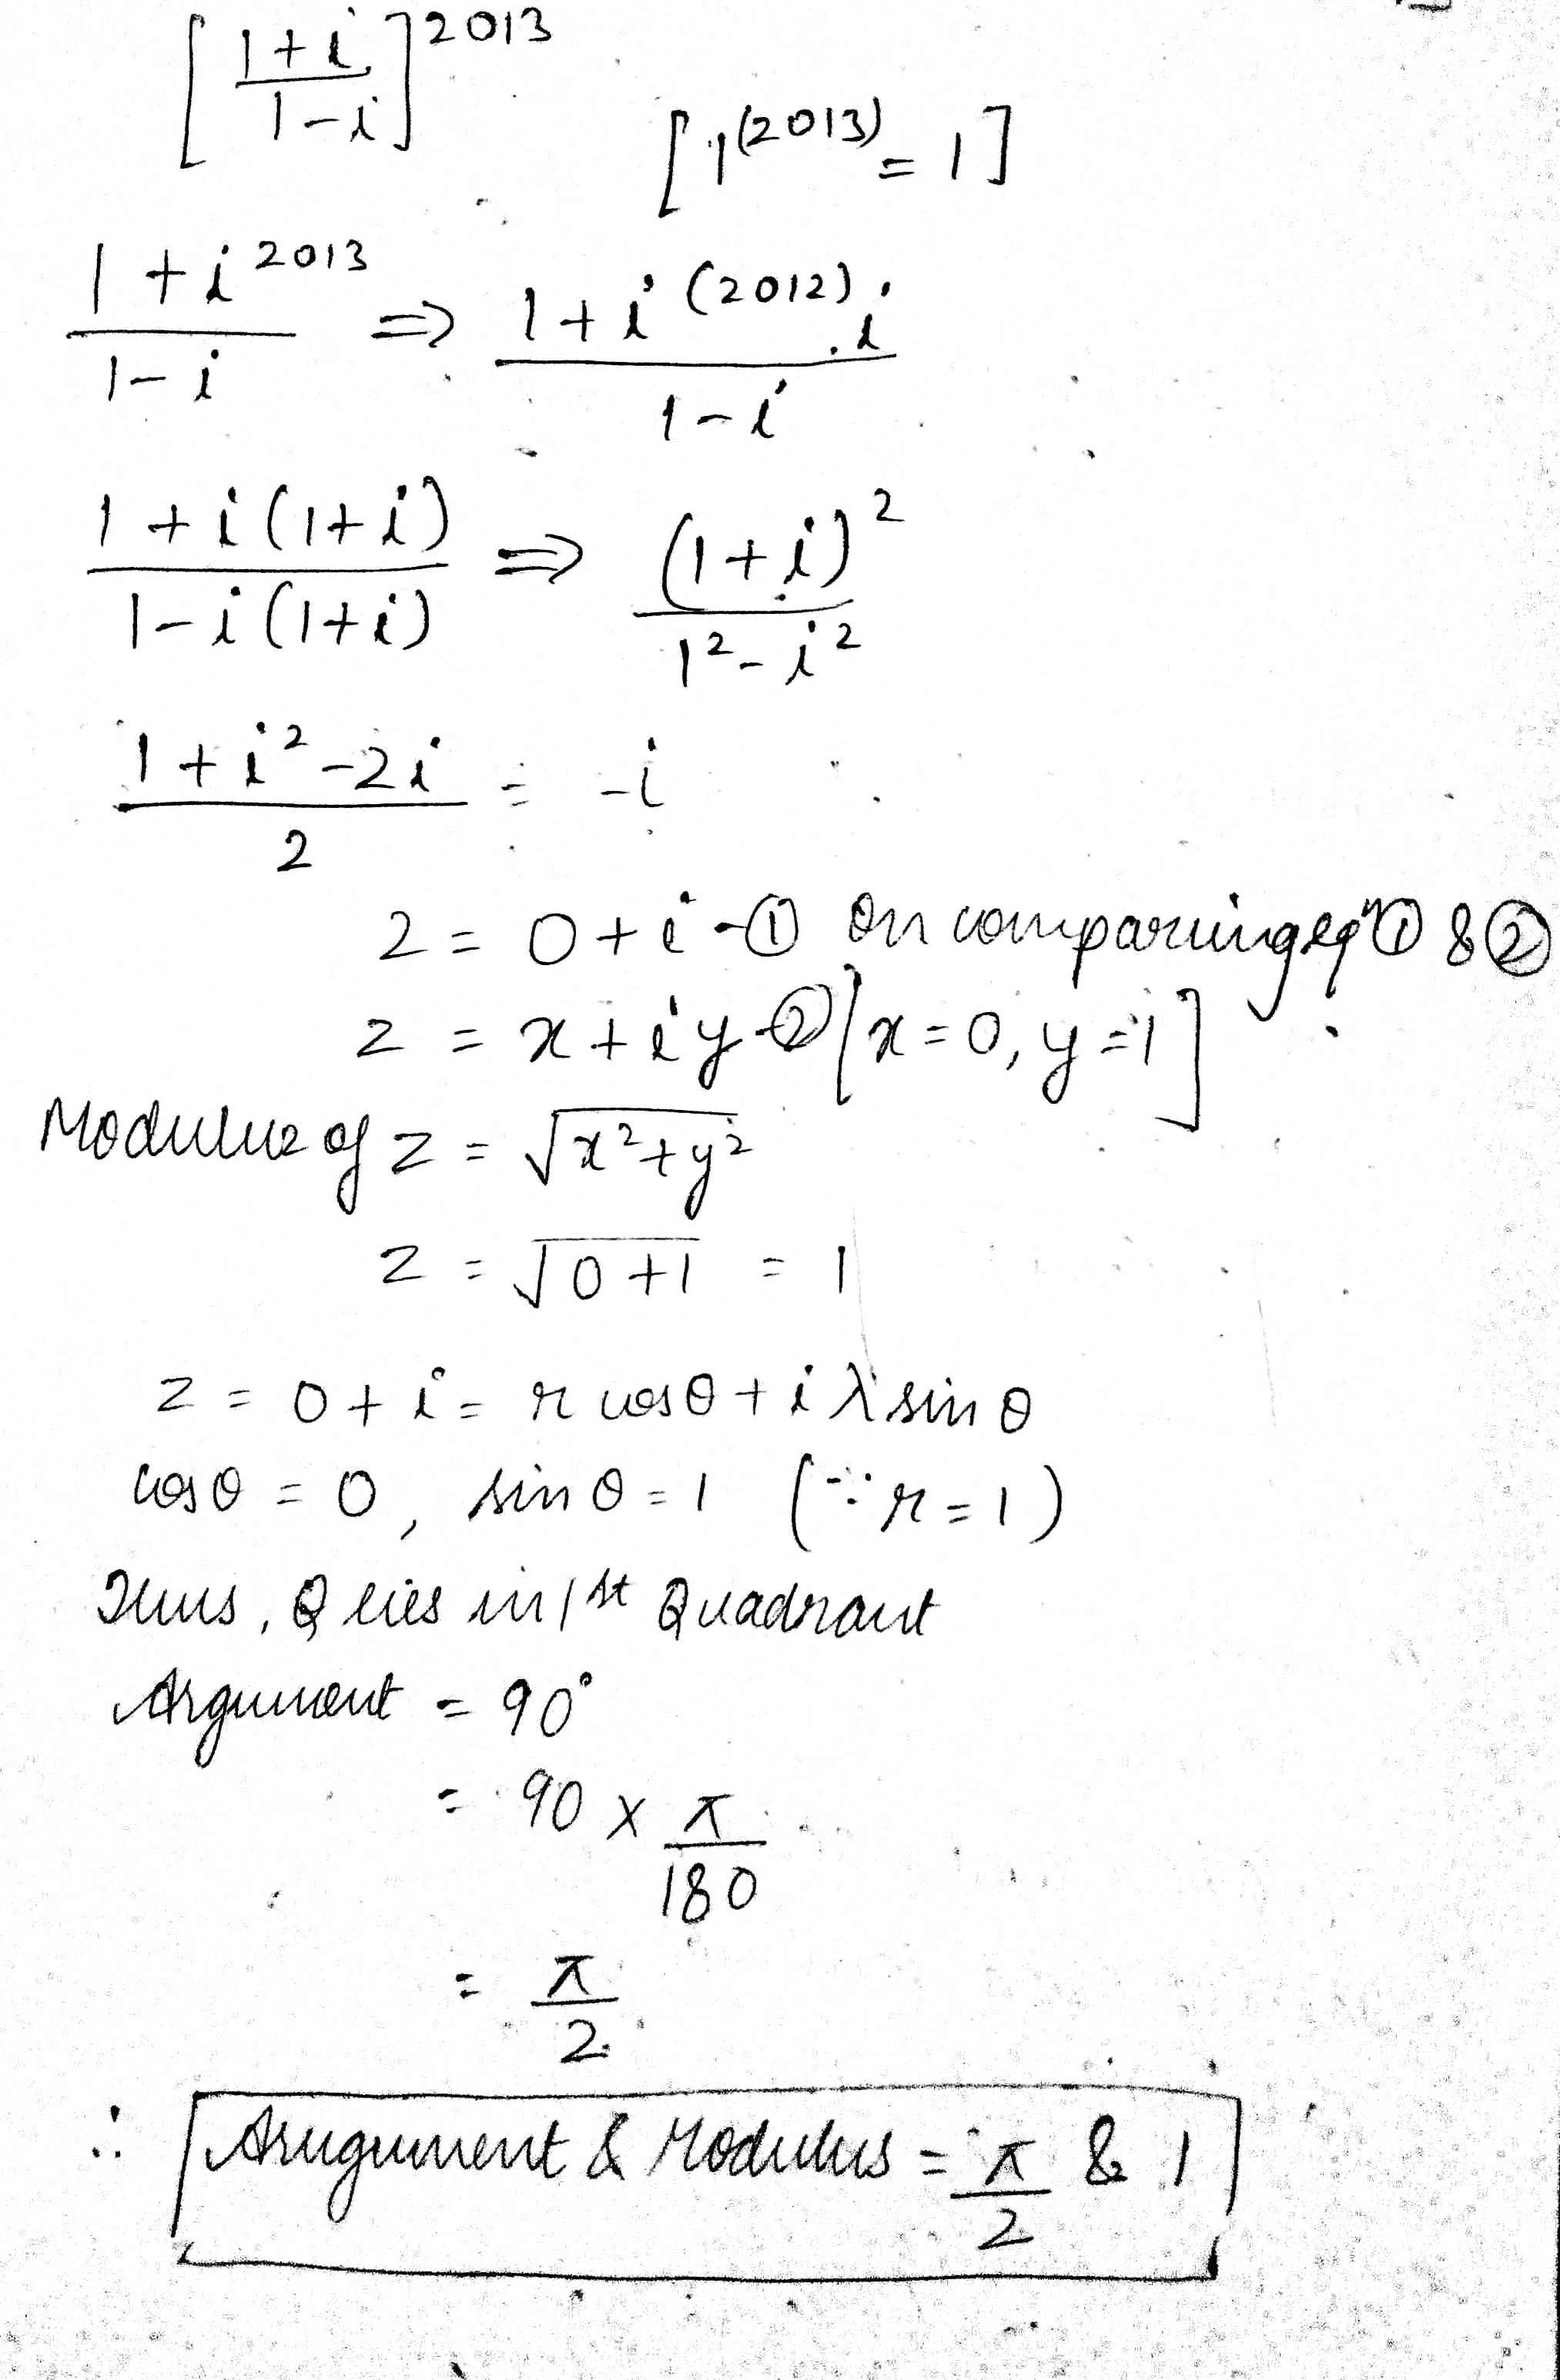 [(1+i)/(1-i)]^2013
[1^(2013) = 1]
(1+i^2013)/(1-i) ⇒ (1+i^(2012).i)/(1-i)
(1+i(1+i))/(1-i(1+i)) ⇒ (1+i)^2/(1^2-i^2)
(1+i^2-2i)/2 = -i
z = 0+i -① On comparing eqn ① & ②
z = x+iy -② [x=0, y=1]
Modulus of z = √(x^2+y^2)
z = √(0+1) = 1
z = 0+i = r cosθ + i r sinθ
cosθ = 0, sinθ = 1 (∵ r=1)
Thus, θ lies in 1st Quadrant
Argument = 90°
= 90 × π/180
= π/2
∴ Arugument & Modulus = π/2 & 1